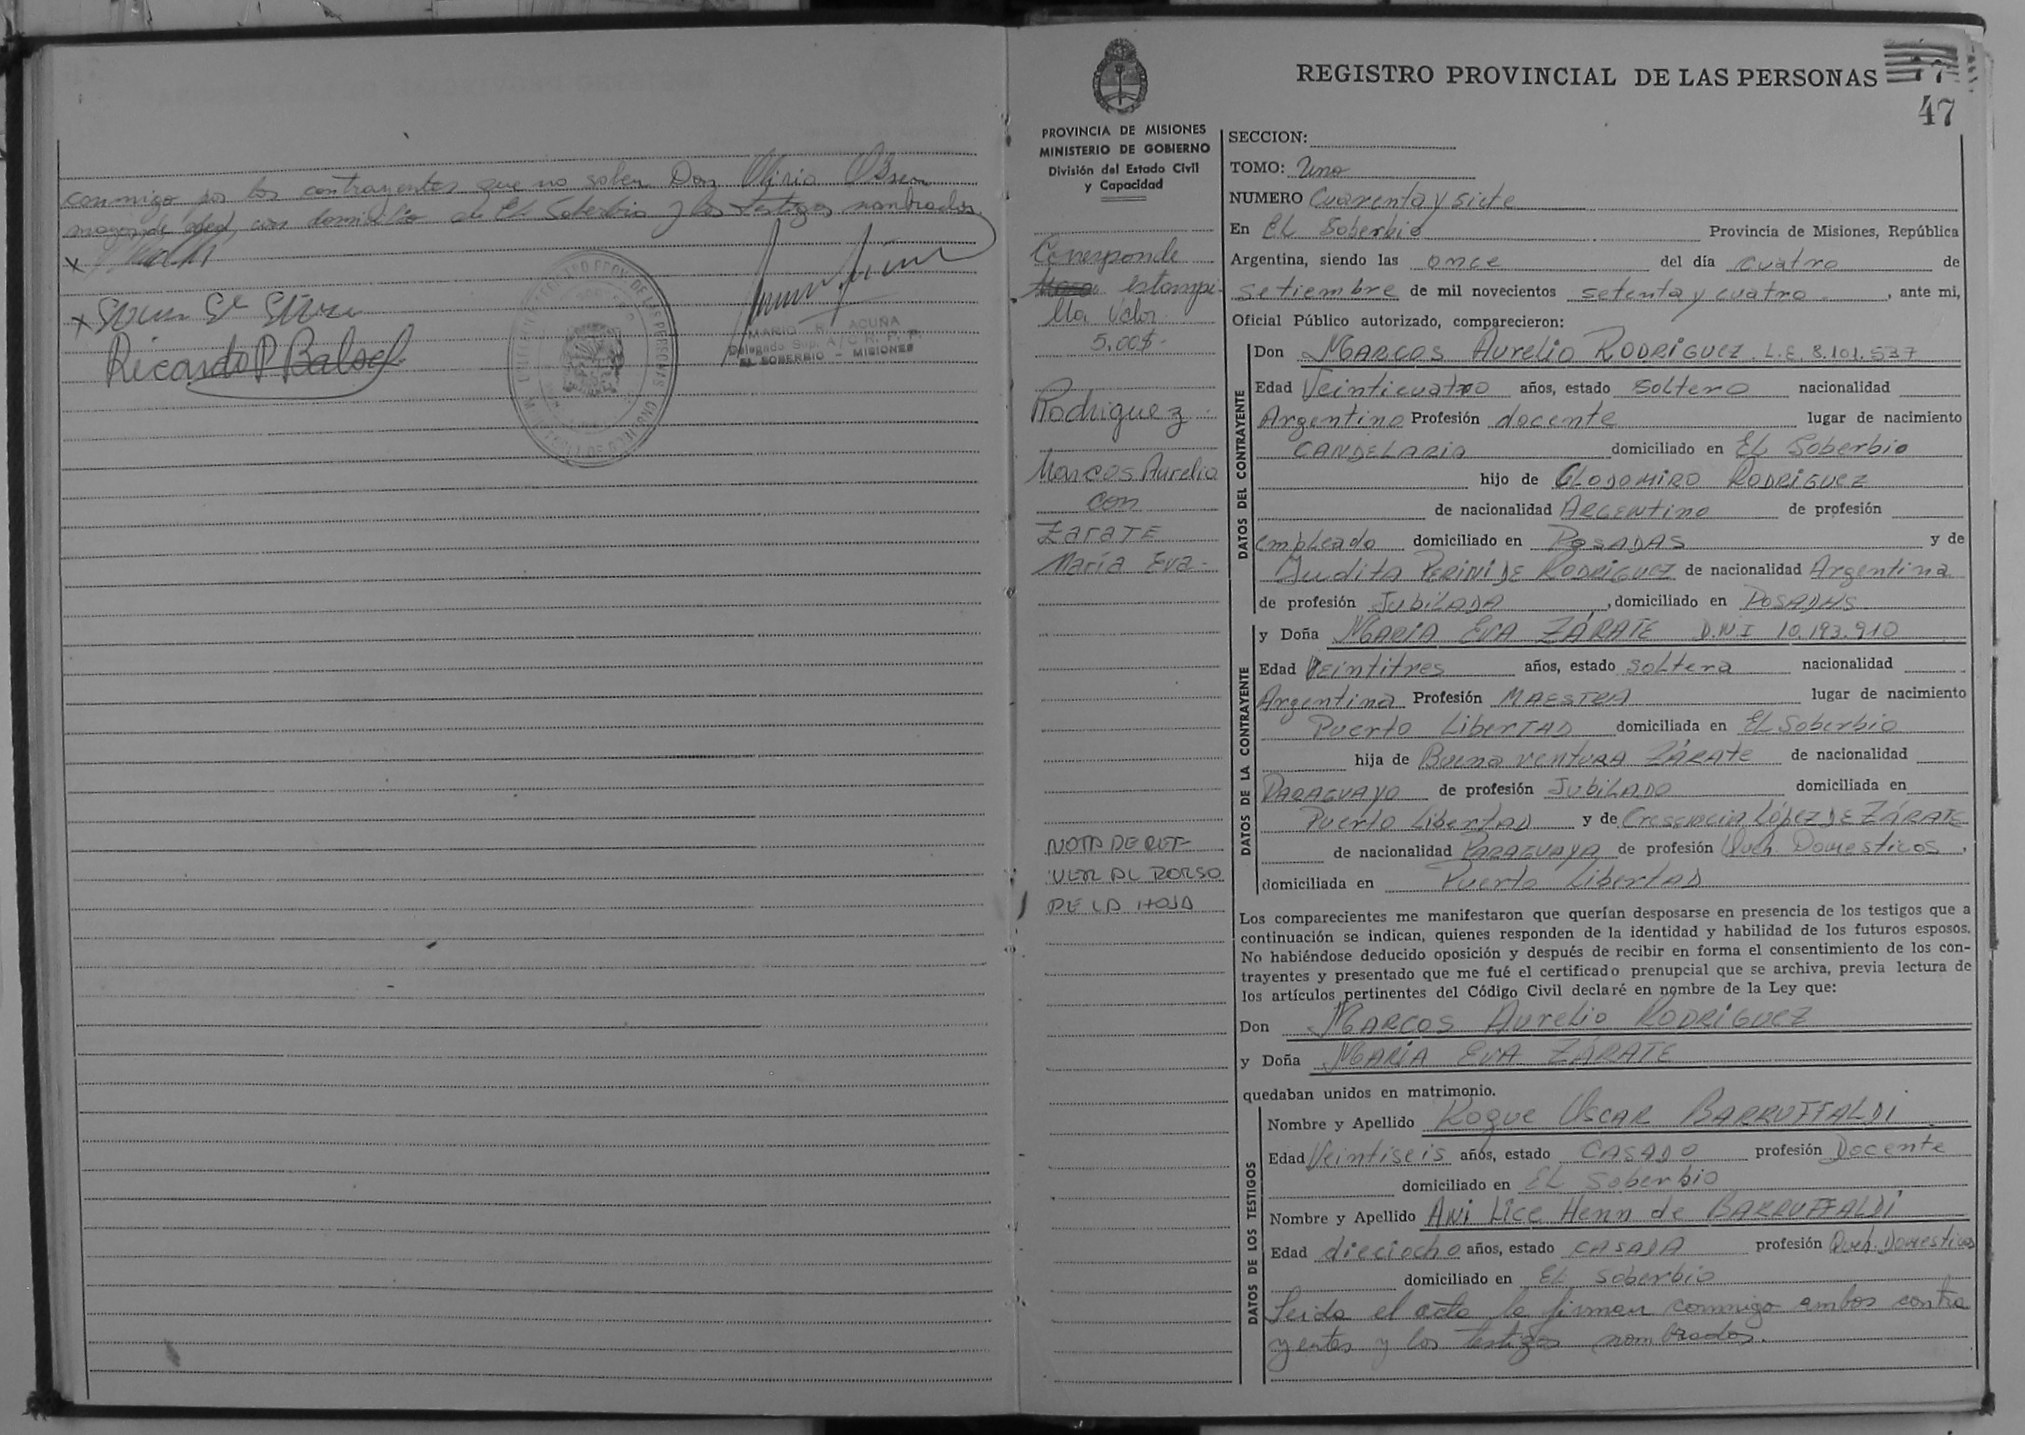 conmigo por los contrayentes que no saben Don Olirio
mayor de edad, con domicilio en El Soberbio y los testigos nombrados.
x
x
Ricardo P. Balsch
MARIO R. ACUÑA
Delegado Sup. A/C R. P. P.
EL SOBERBIO - MISIONES
REGISTRO PROVINCIAL DE LAS PERSONAS
47
PROVINCIA DE MISIONES
MINISTERIO DE GOBIERNO
División del Estado Civil
y Capacidad
Corresponde
estampi-
lla valor
5,00$-
Rodriguez
Marcos Aurelio
con
ZARATE
María Eva-
NOTA DE REF-
VER AL DORSO
DE LA HOJA
SECCION:
TOMO: Uno
NUMERO Cuarenta y siete
En El Soberbio Provincia de Misiones, República
Argentina, siendo las once del día cuatro de
setiembre de mil novecientos setenta y cuatro. , ante mi,
Oficial Público autorizado, comparecieron:
DATOS DEL CONTRAYENTE
Don MARCOS Aurelio RODRIGUEZ. L.E. 8.101.537
Edad Veinticuatro años, estado soltero nacionalidad
Argentino Profesión docente lugar de nacimiento
CANDELARIA domiciliado en El Soberbio
hijo de CLODOMIRO RODRIGUEZ
de nacionalidad ARGENtino de profesión
empleado domiciliado en POSADAS y de
Judita PERINI DE RODRIGUEZ de nacionalidad Argentina
de profesión JUBILADA , domiciliado en POSADAS
DATOS DE LA CONTRAYENTE
y Doña MARÍA EVA ZÁRATE D.N.I 10.193.910
Edad Veintitres años, estado soltera nacionalidad
Argentina Profesión MAESTRA lugar de nacimiento
Puerto LiberTAD domiciliada en El Soberbio
hija de Buena ventURA ZÁRATE de nacionalidad
PARAGUAYO de profesión JUBILADO domiciliada en
Puerto LibertAD y de Cresencia López DE ZÁRATE
de nacionalidad PARAGUAYA de profesión Queh. Domesticos ,
domiciliada en Puerto LibertAD
Los comparecientes me manifestaron que querían desposarse en presencia de los testigos que a
continuación se indican, quienes responden de la identidad y habilidad de los futuros esposos.
No habiéndose deducido oposición y después de recibir en forma el consentimiento de los con-
trayentes y presentado que me fué el certificado prenupcial que se archiva, previa lectura de
los artículos pertinentes del Código Civil declaré en nombre de la Ley que:
Don MARCOS Aurelio RODRIGUEZ
y Doña MARÍA EVA ZÁRATE
quedaban unidos en matrimonio.
DATOS DE LOS TESTIGOS
Nombre y Apellido Roque OSCAR BARRUFFALDI
Edad Veintiseis años, estado CASADO profesión Docente
domiciliado en El Soberbio
Nombre y Apellido ANI Lice Henn de BARRUFFALDI
Edad dieciocho años, estado CASADA profesión Queh. Domesticos
domiciliado en El Soberbio
Leida el acta la firman conmigo ambos contra
yentes y los testigos nombrados.